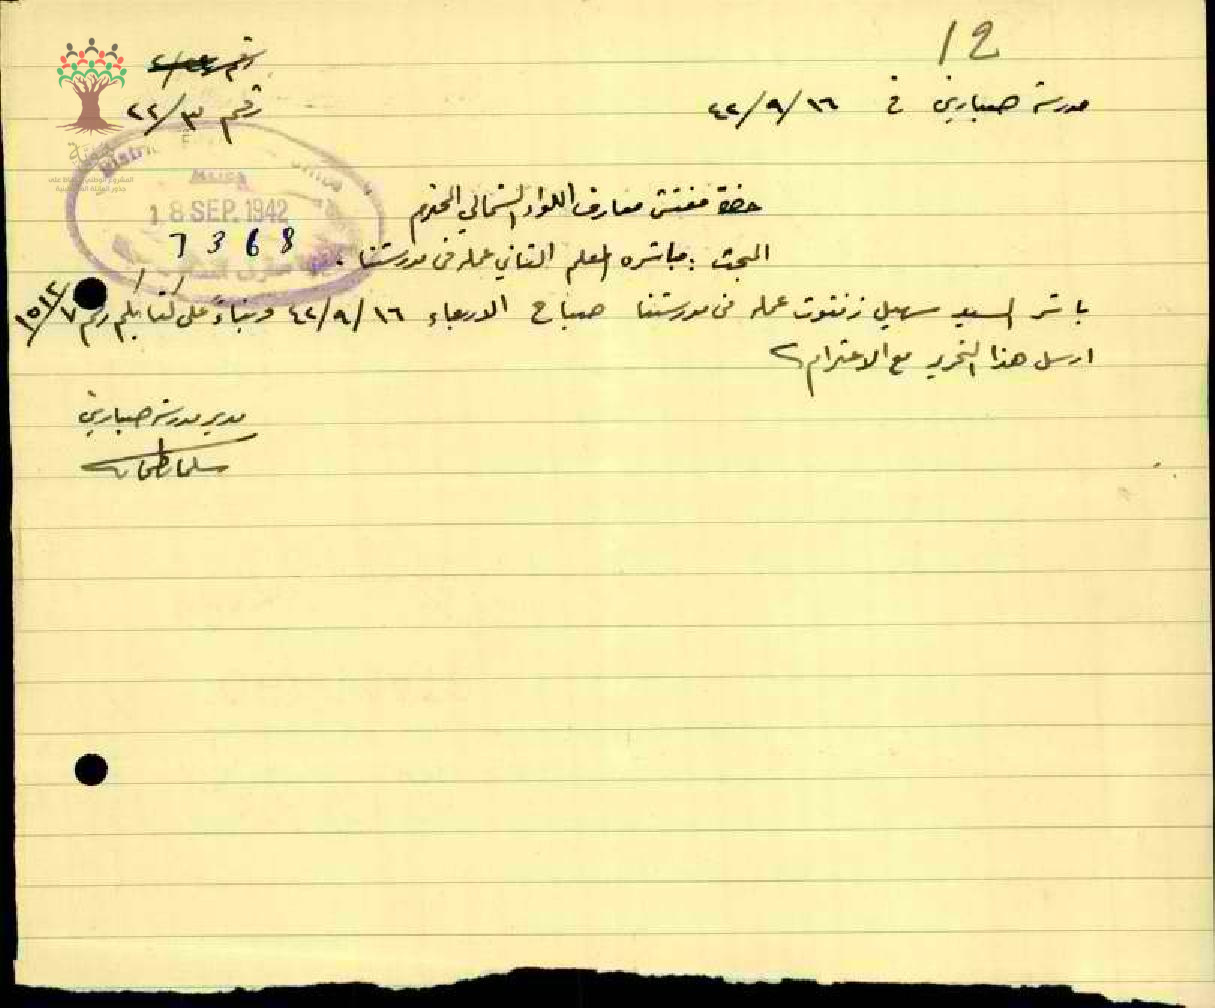 12
رقم
مدرسة صبارين في ١٦/٩/٤٢
رقم ٢٢/٣
District
Office
Haifa
18 SEP. 1942
7368
حضرة مفتش معارف اللواء الشمالي المحترم
المبحث : مباشرة المعلم الثاني عمله في مدرستنا .
باشر السيد سهيل زنتوت عمله في مدرستنا صباح الاربعاء ١٦/٩/٤٢ وبناءً على كتابكم رقم ١٥١٢/٧
ارسل هذا التحرير مع الاحترام
مدير مدرسة صبارين